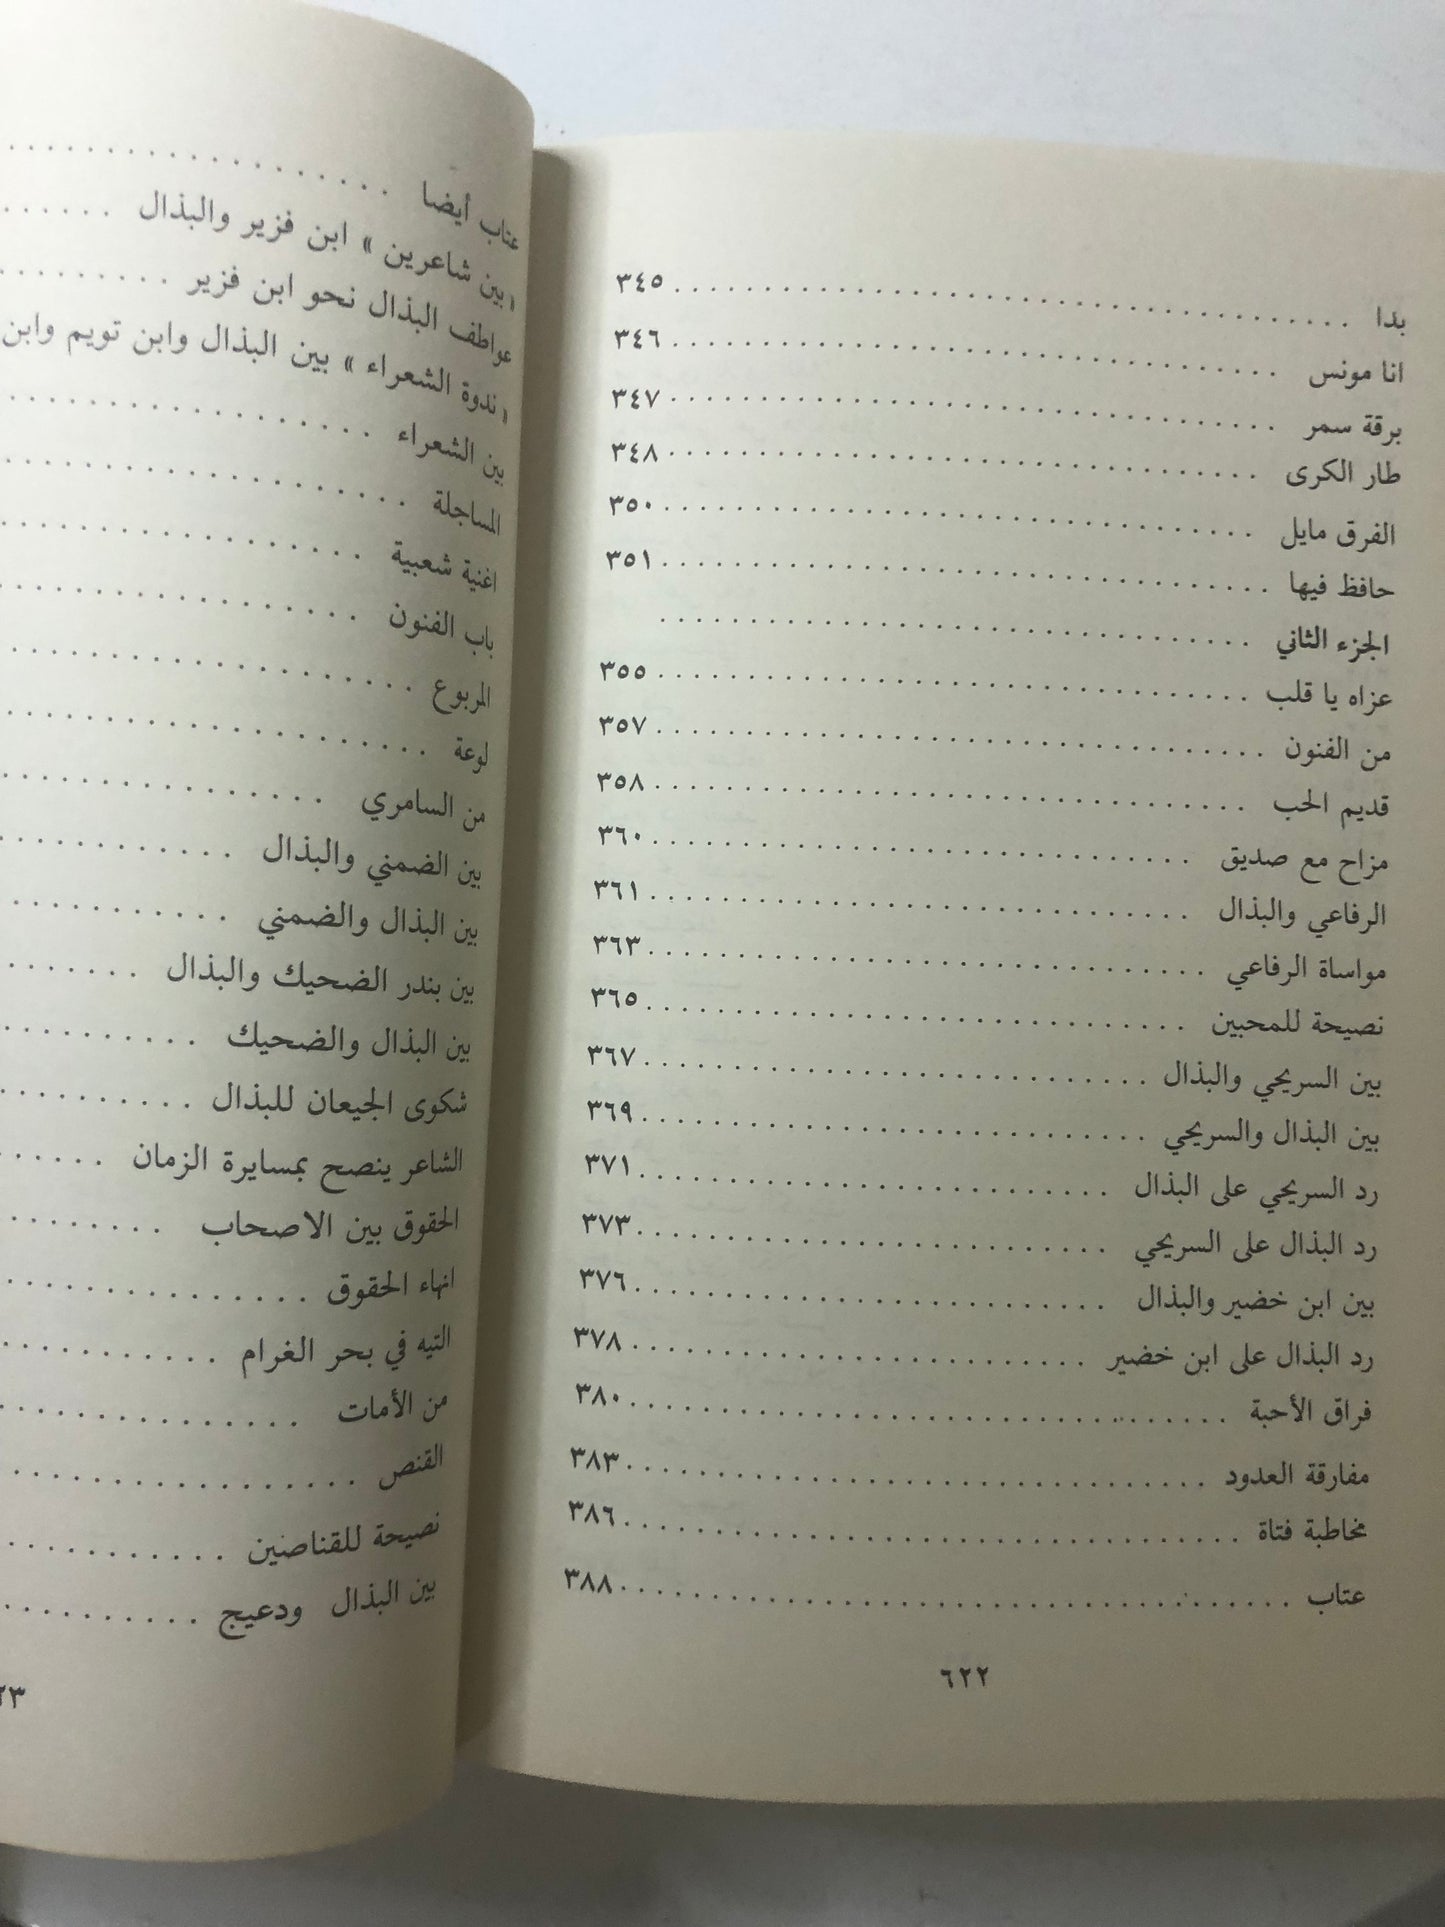 بدا . . . . . . . . . . . . . . . . . . . . ٣٤٥
انا مونس . . . . . . . . . . . . . . . . . . . . ٣٤٦
برقة سمر . . . . . . . . . . . . . . . . . . . . ٣٤٧
طار الكرى . . . . . . . . . . . . . . . . . . . . ٣٤٨
الفرق مايل . . . . . . . . . . . . . . . . . . . . ٣٥٠
حافظ فيها . . . . . . . . . . . . . . . . . . . . ٣٥١
الجزء الثاني . . . . . . . . . . . . . . . . . . . .
عزاه يا قلب . . . . . . . . . . . . . . . . . . . . ٣٥٥
من الفنون . . . . . . . . . . . . . . . . . . . . ٣٥٧
قديم الحب . . . . . . . . . . . . . . . . . . . . ٣٥٨
مزاح مع صديق . . . . . . . . . . . . . . . . . . . . ٣٦٠
الرفاعي والبذال . . . . . . . . . . . . . . . . . . . . ٣٦١
مواساة الرفاعي . . . . . . . . . . . . . . . . . . . . ٣٦٣
نصيحة للمحبين . . . . . . . . . . . . . . . . . . . . ٣٦٥
بين السريحي والبذال . . . . . . . . . . . . . . . . . . . . ٣٦٧
بين البذال والسريحي . . . . . . . . . . . . . . . . . . . . ٣٦٩
رد السريحي على البذال . . . . . . . . . . . . . . . . . . . . ٣٧١
رد البذال على السريحي . . . . . . . . . . . . . . . . . . . . ٣٧٣
بين ابن خضير والبذال . . . . . . . . . . . . . . . . . . . . ٣٧٦
رد البذال على ابن خضير . . . . . . . . . . . . . . . . . . . . ٣٧٨
فراق الأحبة . . . . . . . . . . . . . . . . . . . . ٣٨٠
مفارقة العدود . . . . . . . . . . . . . . . . . . . . ٣٨٣
مخاطبة فتاة . . . . . . . . . . . . . . . . . . . . ٣٨٦
عتاب . . . . . . . . . . . . . . . . . . . . ٣٨٨
٦٢٢
عتاب أيضا . . . . . . . . . .
« بين شاعرين » ابن فزير والبذال . . . . . .
عواطف البذال نحو ابن فزير . . . . . . . .
« ندوة الشعراء » بين البذال وابن تويم وابن
بين الشعراء . . . . . . . . . .
المساجلة . . . . . . . . . .
اغنية شعبية . . . . . . . . . .
باب الفنون . . . . . . . . . .
المربوع . . . . . . . . . .
لوعة . . . . . . . . . .
من السامري . . . . . . . . . .
بين الضمني والبذال . . . . . . . . . .
بين البذال والضمني . . . . . . . . . .
بين بندر الضحيك والبذال . . . . . . .
بين البذال والضحيك . . . . . . . . . .
شكوى الجيعان للبذال . . . . . . . . . .
الشاعر ينصح بمسايرة الزمان . . . . . .
الحقوق بين الاصحاب . . . . . . . .
انهاء الحقوق . . . . . . . . . .
التيه في بحر الغرام . . . . . . . . . .
من الأمات . . . . . . . . . .
القنص . . . . . . . . . .
نصيحة للقناصين . . . . . . . . . .
بين البذال ودعيج . . . . . . . . . .
٢٣